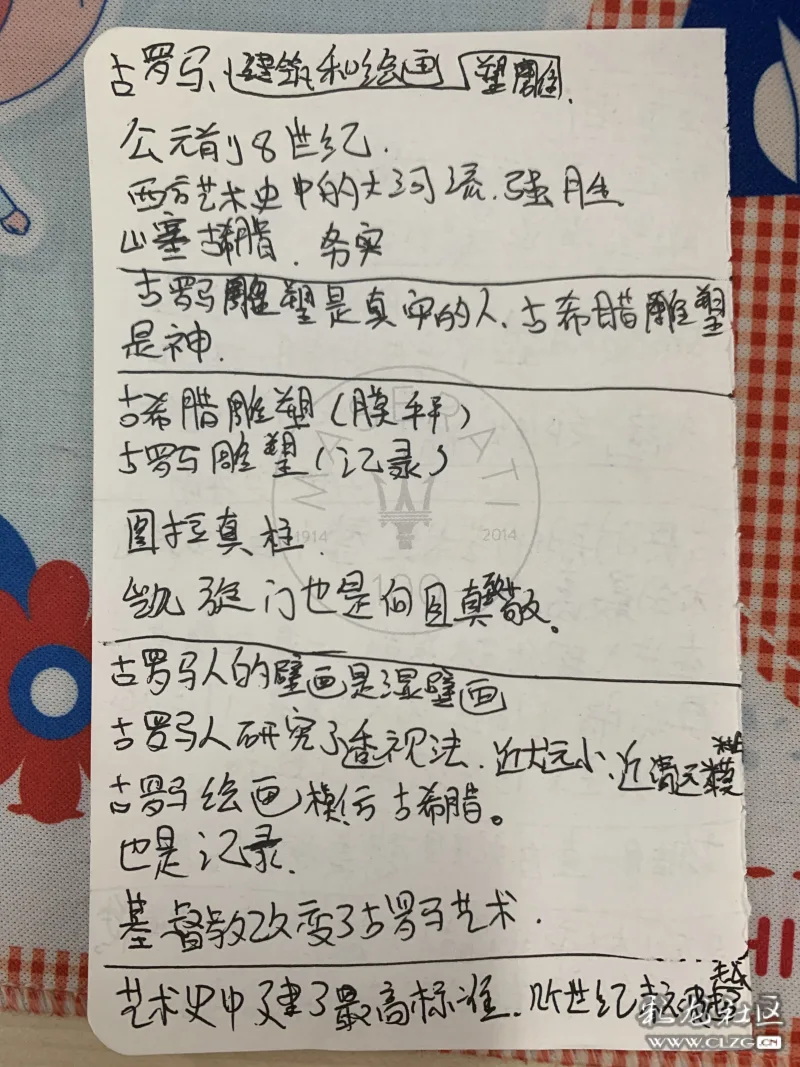 古罗马、建筑和绘画 塑雕.
公元前8世纪.
西方艺术史中的大河流.强胜
山寨古希腊.务实
古罗马雕塑是真实的人、古希腊雕塑
是神.
古希腊雕塑(膜拜)
古罗马雕塑(记录)
MASERATI
1914 2014
100
图拉真柱.
凯旋门也是向图真致敬。
古罗马人的壁画是湿壁画
古罗马人研究了透视法.近大远小、近清远模糊
古罗马绘画模仿古希腊。
也是记录.
基督教改变了古罗马艺术.
艺术史中建了最高标准.
社区
WWW.CLZG.CN